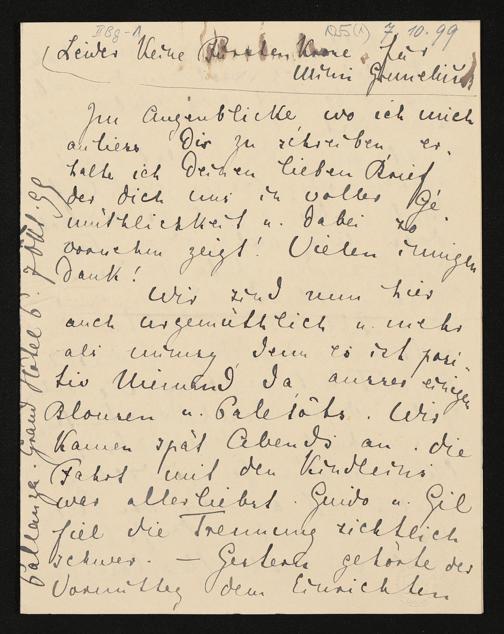 IIBg-1
7.10.99
Leider Keine Fürsten Krone für
Mimi Grunelius
Im Augenblicke wo ich mich
anliess Dir zu schreiben er-
halte ich Deinen lieben Brief
der Dich uns in voller Ge-
müthlichkeit u. dabei so
vornehm zeigt! Vielen innigen
Dank!
Wir sind nun hier
auch urgemüthlich u. mehr
als ruhig, denn es ist posi-
tiv Niemand da, ausser einigen
Blousen u. Paletôts. Wir
kamen spät Abends an. die
Fahrt mit den Kindleins
war allerliebst. Guido u. Gil
fiel die Trennung sichtlich
schwer. — Gestern gehörte der
Vormittag dem Einrichten
Pallanza. Grand Hôtel P. 7 Okt. 99